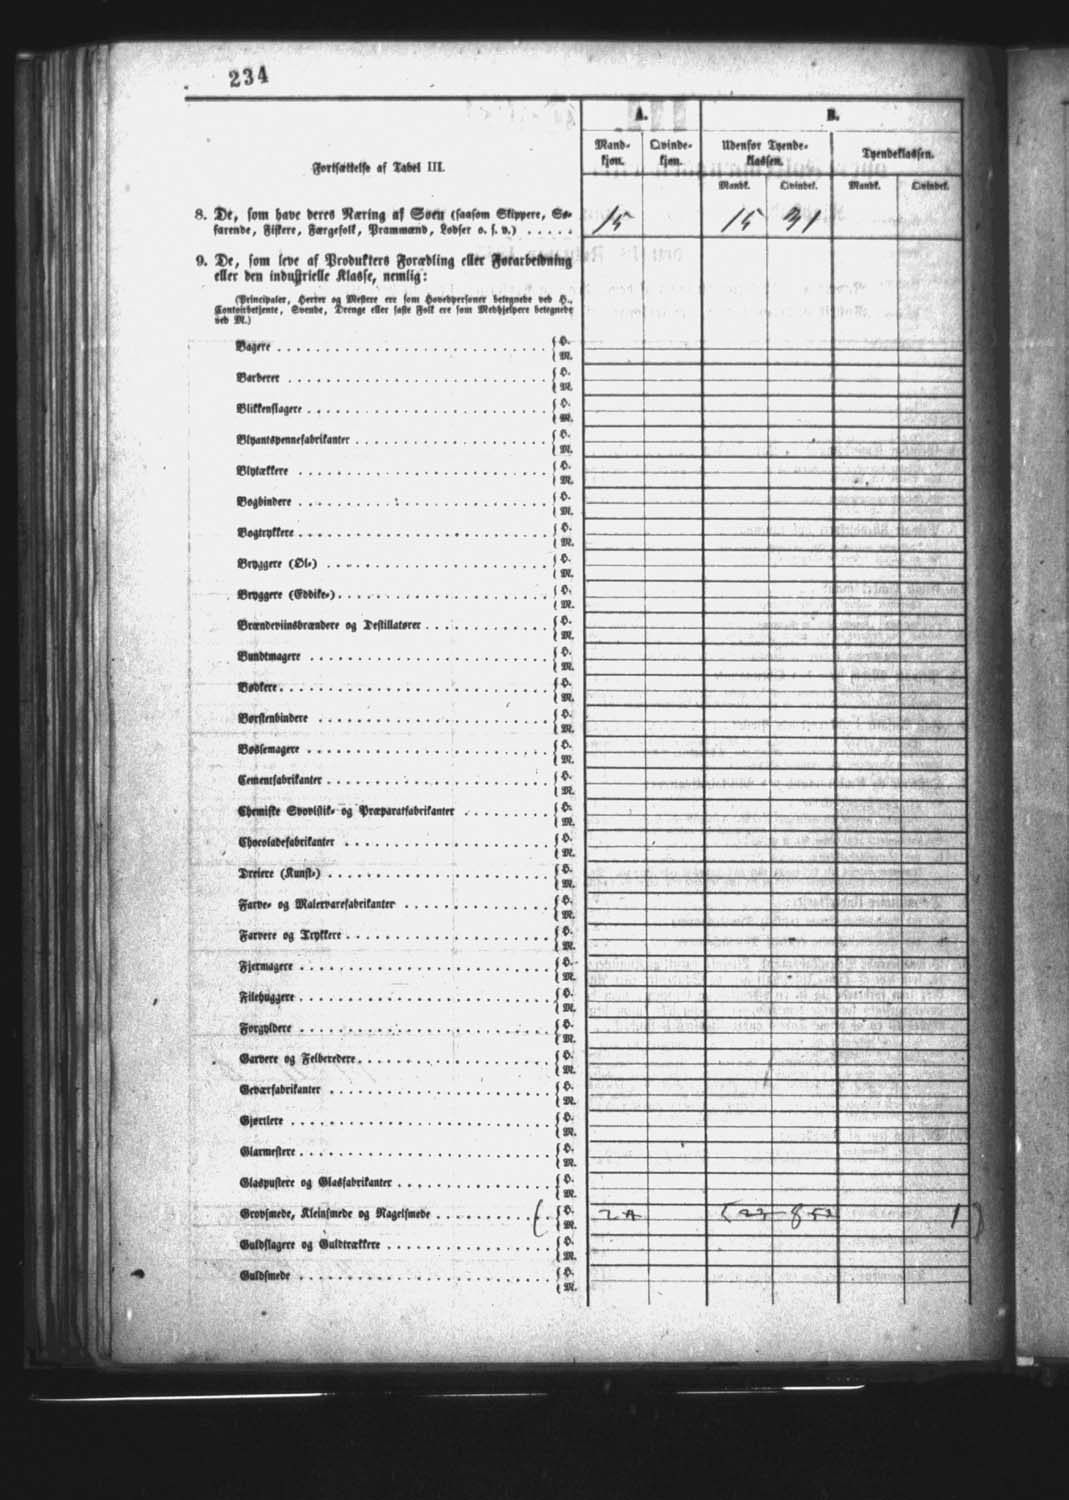 234
A.
B.
Fortsættelse af Tabel III.
Mandkjøn.
Qvindekjøn.
Udenfor Tyendeklassen.
Tyendeklassen.
Mandk.
Qvindek.
Mandk.
Qvindek.
8. De, som have deres Næring af Søen (saasom Skippere, Søfarende, Fiskere, Færgefolk, Prammænd, Lodser o. s. v.) . . . . . 15 15 31
9. De, som leve af Produkters Forædling eller Forarbeidning
eller den industrielle Klasse, nemlig:
(Principaler, Herrer og Mestere ere som Hovedpersoner betegnede ved H.,
Contoirbetjente, Svende, Drenge eller faste Folk ere som Medhjelpere betegnede
ved M.)
Bagere . . . { H.
M.
Barberer . . . { H.
M.
Blikkenslagere . . . { H.
M.
Blyantspennefabrikanter . . . { H.
M.
Blytækkere . . . { H.
M.
Bogbindere . . . { H.
M.
Bogtrykkere . . . { H.
M.
Bryggere (Øl-) . . . { H.
M.
Bryggere (Eddike-) . . . { H.
M.
Brændeviinsbrændere og Destillatører . . . { H.
M.
Bundtmagere . . . { H.
M.
Bødkere . . . { H.
M.
Børstenbindere . . . { H.
M.
Bøssemagere . . . { H.
M.
Cementfabrikanter . . . { H.
M.
Chemiske Svovlstik- og Præparatfabrikanter . . . { H.
M.
Chocoladefabrikanter . . . { H.
M.
Dreiere (Kunst-) . . . { H.
M.
Farve- og Malervarefabrikanter . . . { H.
M.
Farvere og Trykkere . . . { H.
M.
Fjermagere . . . { H.
M.
Filehuggere . . . { H.
M.
Forgyldere . . . { H.
M.
Garvere og Felberedere . . . { H.
M.
Geværfabrikanter . . . { H.
M.
Gjørtlere . . . { H.
M.
Glarmestere . . . { H.
M.
Glaspustere og Glasfabrikanter . . . { H.
M.
Grovsmede, Kleinsmede og Nagelsmede . . . { H. 1
M.
Guldslagere og Guldtrækkere . . . { H.
M.
Guldsmede . . . { H.
M.